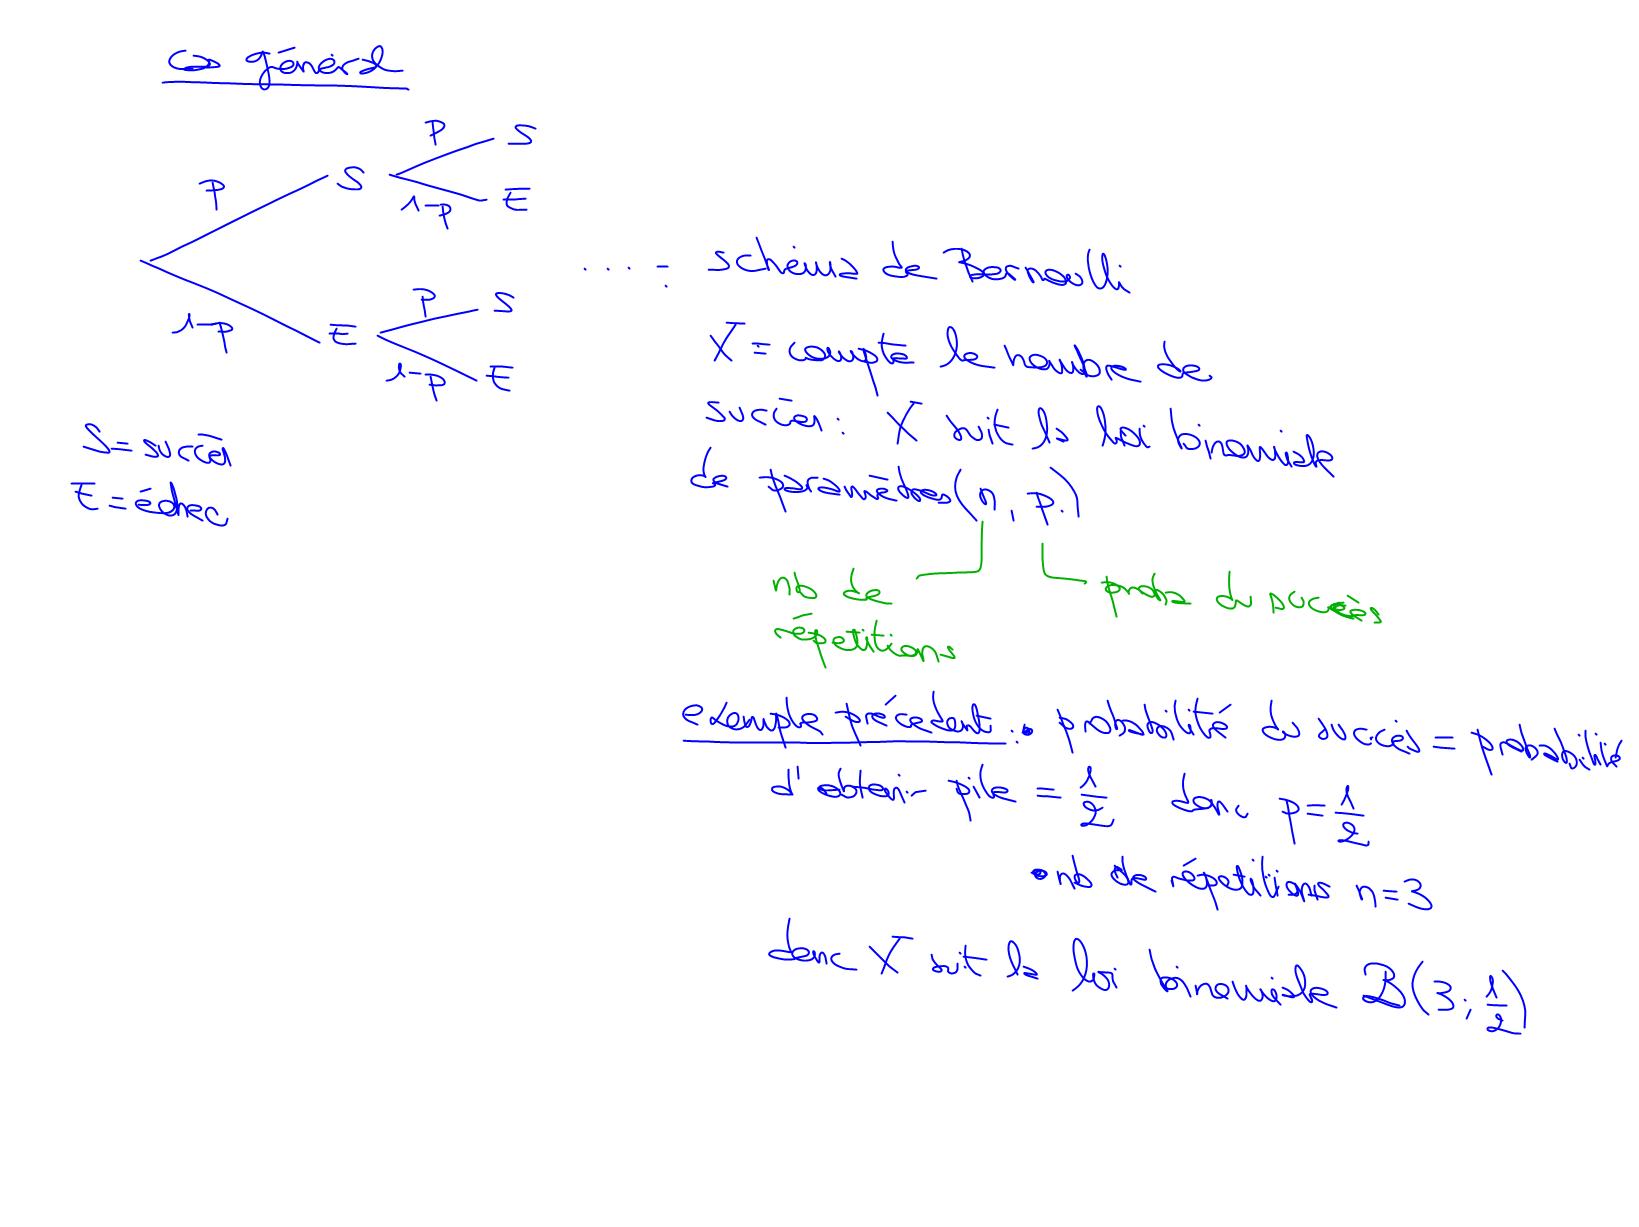 cas général
p S
p S
1-p E
.... schéma de Bernoulli
p S
1-p E
1-p E
X = compte le nombre de
succès : X suit la loi binomiale
S = succès
de paramètres (n, p.)
E = échec
nb de
répetitions
proba du succès
exemple précédent : • probabilité du succès = probabilité
d'obtenir pile = 1/2 donc p = 1/2
• nb de répetitions n=3
donc X suit la loi binomiale B(3; 1/2)